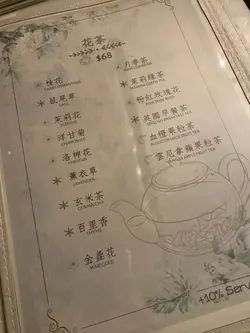 花茶
$68
桂花
鼠尾草
茉莉花
洋甘菊
CHAMOMILE
洛神花
薰衣草
LAVENDER
玄米茶
百里香
THYME
金盞花
MARIGOLD
月季茶
茉莉綠茶
粉紅玫瑰花
英國早餐茶
ENGLISH BREAKFAST TEA
血橙果粒茶
BLOOD ORANGE FRUIT TEA
雲尼拿蘋果粒茶
VANILLA APPLE FRUIT TEA
+10% Serv